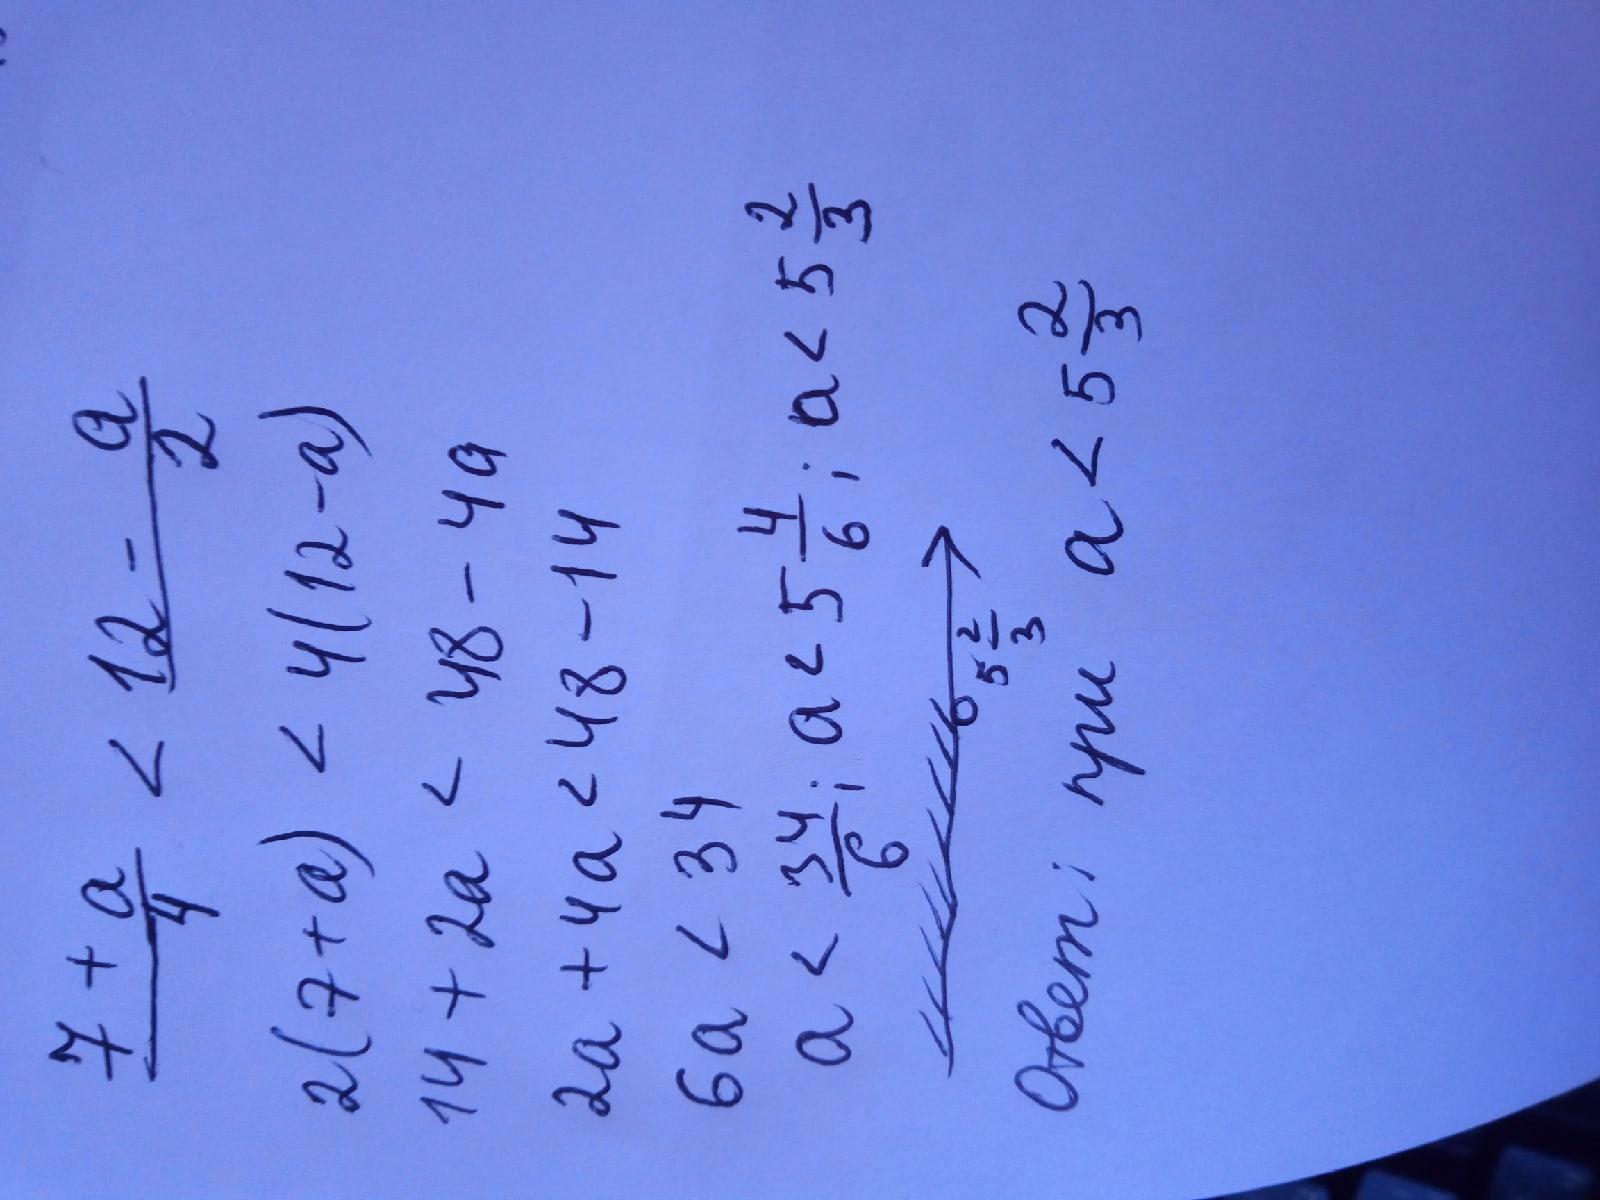 (7 + a)/4 < (12 - a)/2
2(7+a) < 4(12-a)
14 + 2a < 48 - 4a
2a + 4a < 48 - 14
6a < 34
a < 34/6; a < 5 4/6; a < 5 2/3
5 2/3
Ответ: при a < 5 2/3